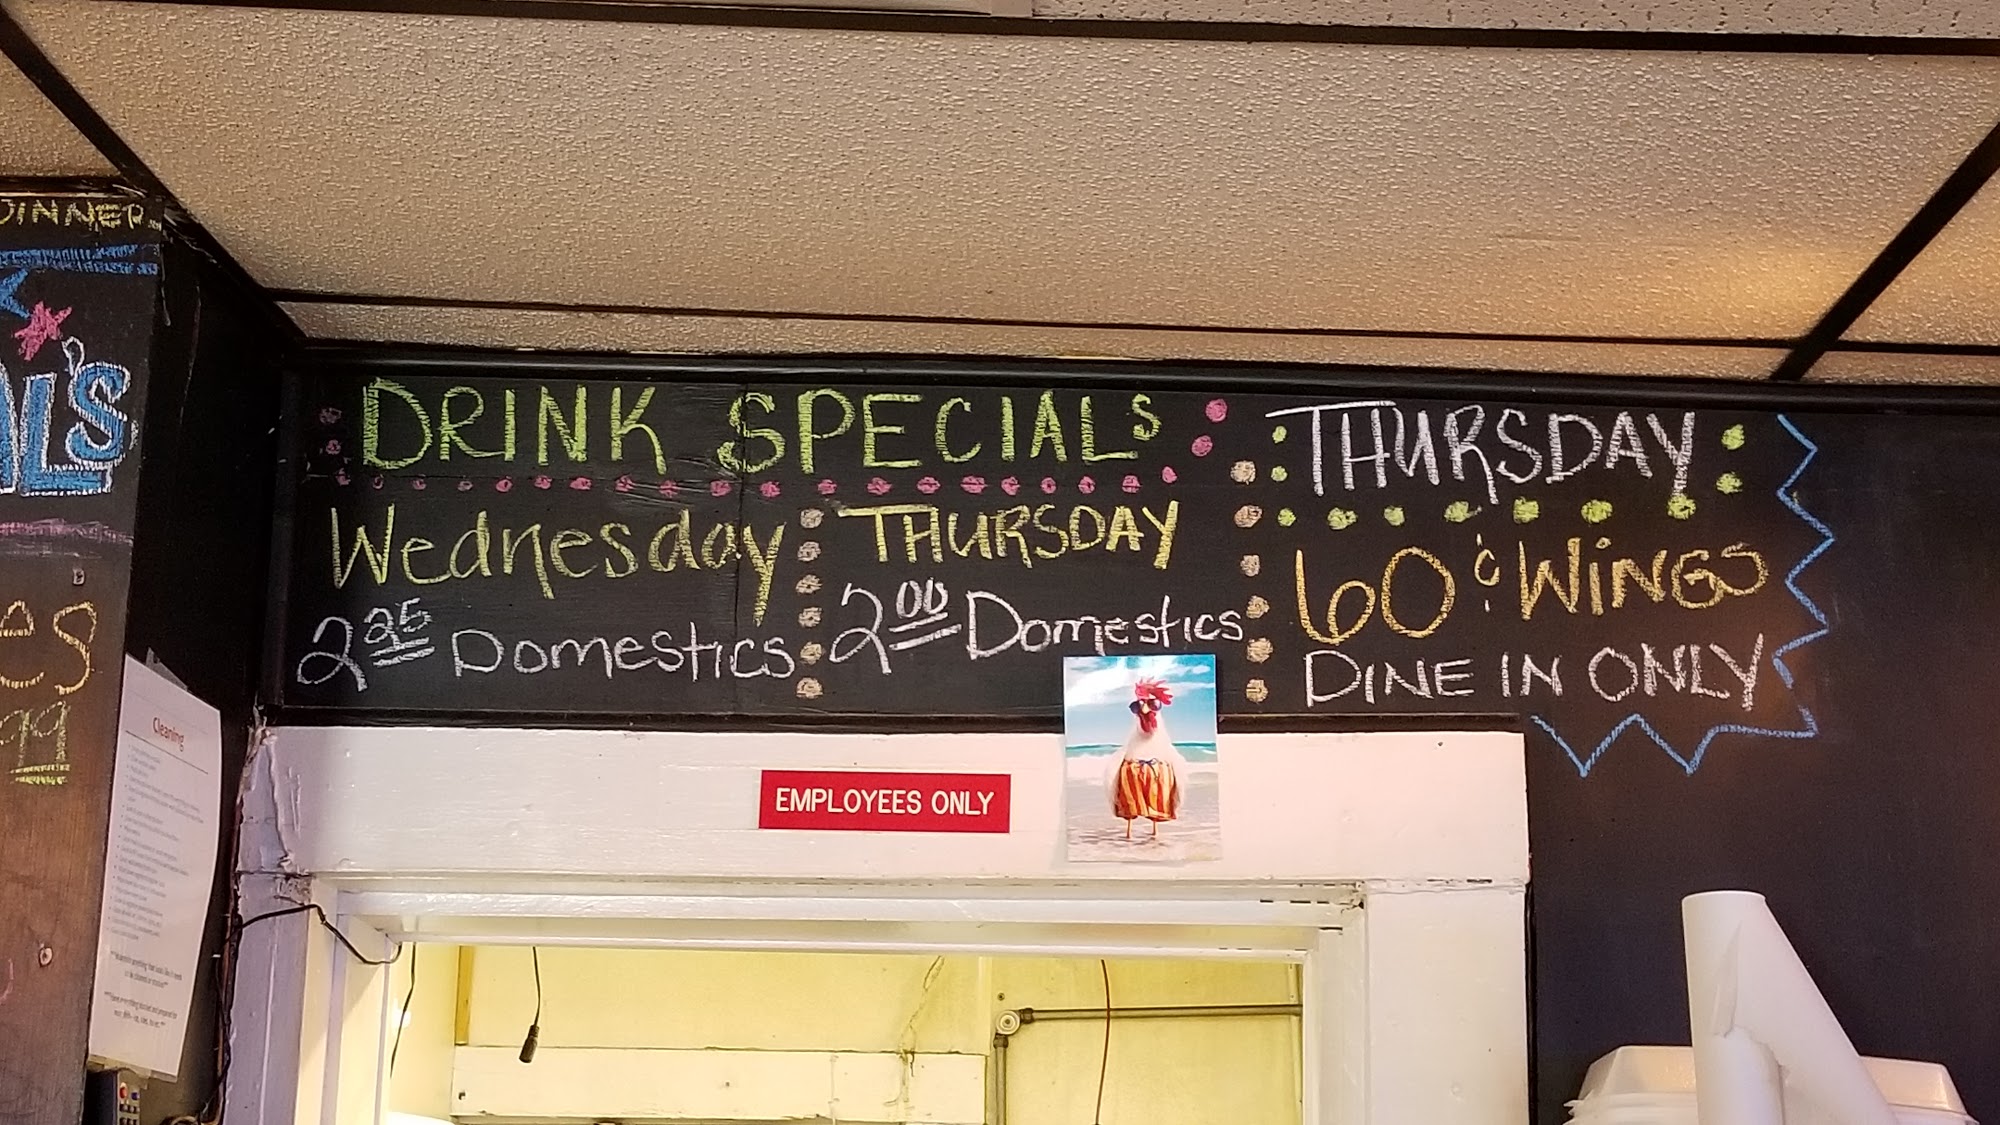 DINNER
AL'S
es
99
DRINK SPECIALS
Wednesday
2.25 Domestics
THURSDAY
2.00 Domestics
THURSDAY
60¢ WINGS
DINE IN ONLY
EMPLOYEES ONLY
Cleaning